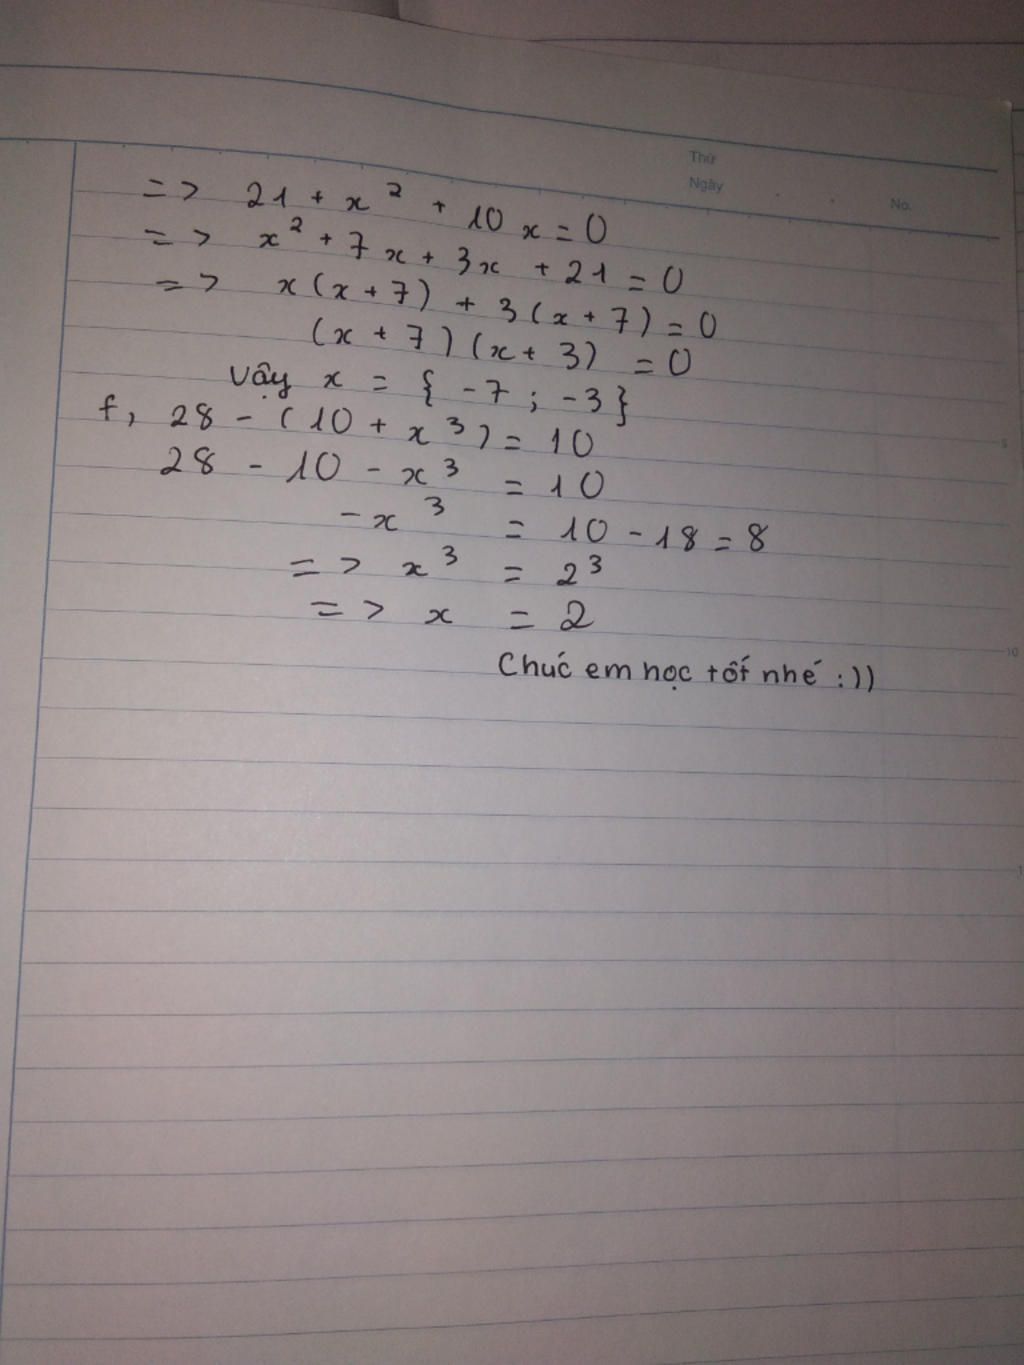 Thứ
Ngày
No.
=> 21 + x² + 10x = 0
=> x² + 7x + 3x + 21 = 0
=> x(x + 7) + 3(x + 7) = 0
(x + 7)(x + 3) = 0
Vậy x = {-7 ; -3}
f, 28 - (10 + x³) = 10
28 - 10 - x³ = 10
-x³ = 10 - 18 = 8
=> x³ = 2³
=> x = 2
Chúc em học tốt nhé :))
5
10